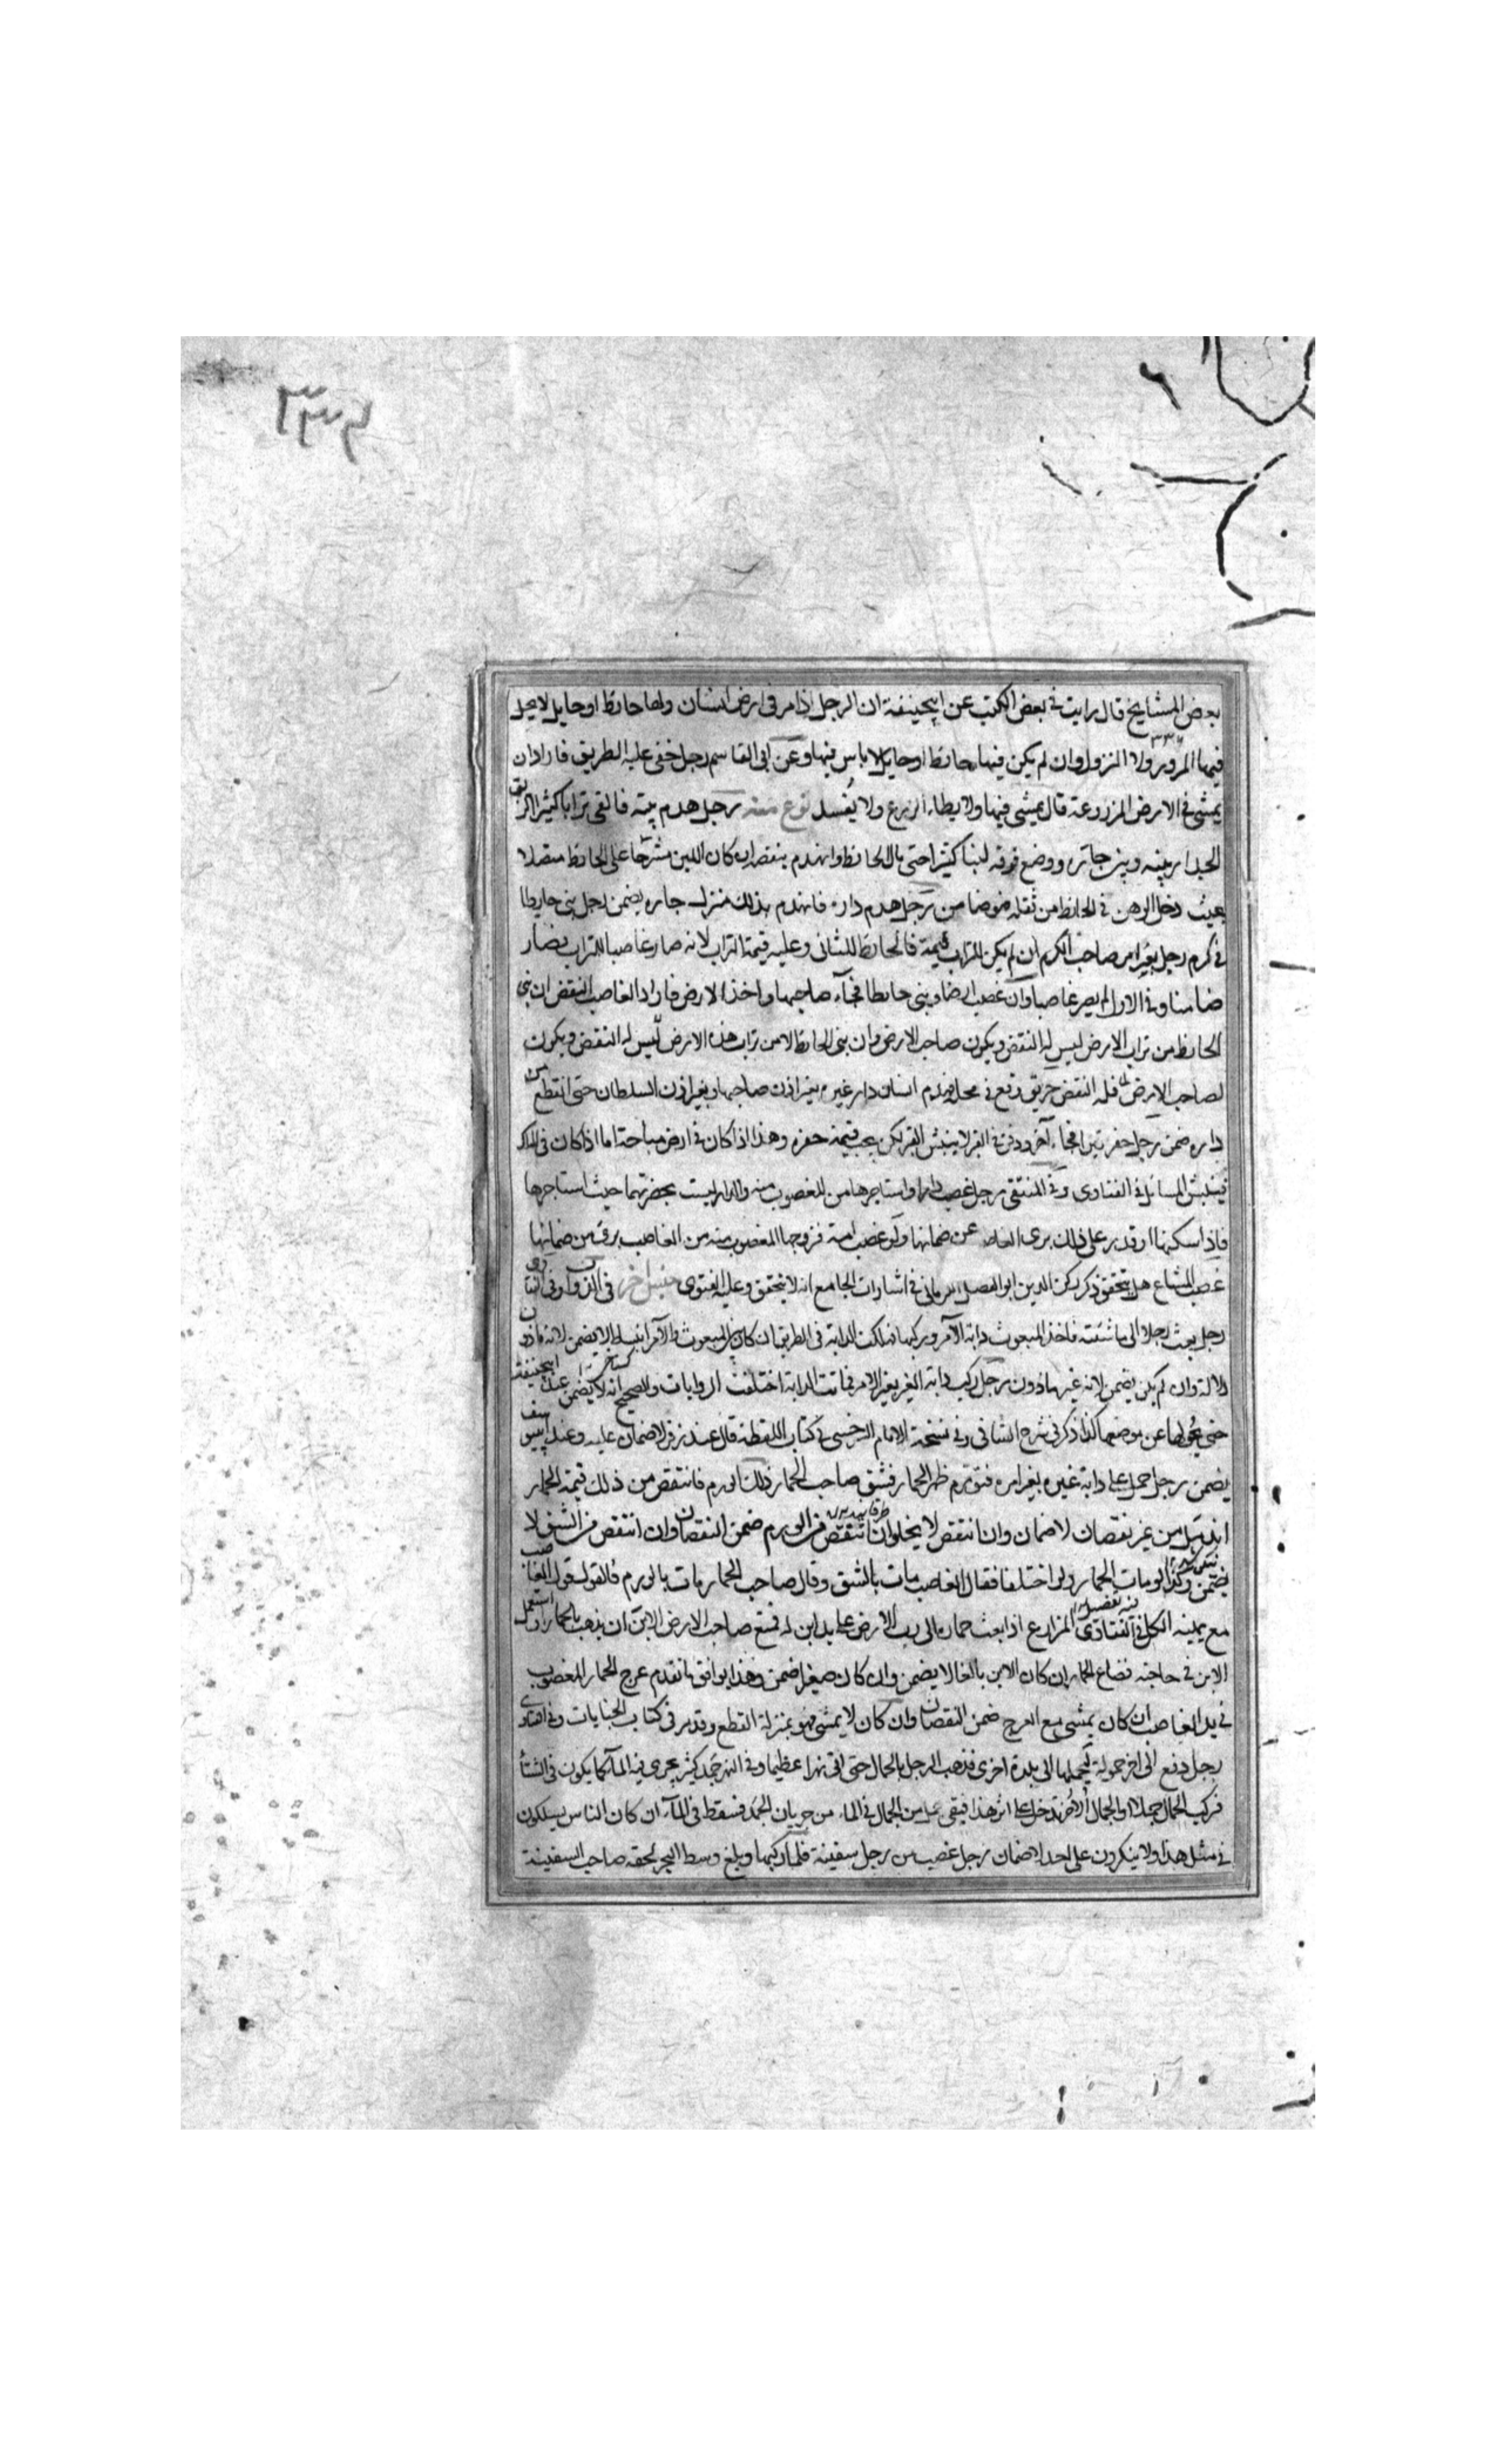 ٣٣٤
بعض المشايخ قال رايت في بعض الكتب عن ابيحنيفة ان الرجل اذا مر في ارض انسان ولها حائط او حايل لا يحل
فيها المرور ولا النزول وان لم يكن فيها حائط او حايل لا باس فيها وعن ابي القاسم رجل خفى عليه الطريق فاراد ان
يمشى في الارض المزروعة قال يمشى فيها ولا يطاء الزرع ولا يفسد نوع منه رجل هدم بيته فالقى ترابا كثيرا
الجدار بينه وبين جاره ووضع فوقه لبنا كثيرا حتى بال الحائط وانهدم ينقصه ان كان اللبن مشرحا على الحائط متصلا
بحيث دخل الوهن في الحائط من ثقله ضمن رجل هدم داره فانهدم بذلك منزل جاره يضمن رجل بنى حايطا
في كرم رجل بغير امر صاحب الكرم ان لم يكن للتراب قيمة فالحائط للثانى وعليه قيمة التراب لانه صار غاصبا للتراب فصار
ضامنا وفي الاول لم يصر غاصبا وان غصب ارضا وبنى حائطا فجاء صاحبها واخذ الارض فاراد الغاصب النقض ان بنى
الحائط من تراب الارض ليس له النقض ويكون صاحب الارض وان بنى الحائط لا من تراب هذه الارض ليس له النقض ويكون
لصاحب الارض فله النقض حريق وقع في محلة فهدم انسان دار غيره بغير اذن صاحبها وبغير اذن السلطان حتى انقطع من
داره ضمن رجل حفر قبرا فجاء آخر ودفن في القبر لا ينبش القبر لكن يجب قيمة حفره وهذا اذا كان في ارض مباحة اما اذا كان في الملك
فينبش المسائل في الفتاوى وفي المنتقى رجل غصب دارا واستاجرها من المغصوب منه والدار ليست بحضرتهما حيث استاجرها
فاذا سكنها او قدر على ذلك برى الغاصب عن ضمانها ولو غصب امة فزوجها المغصوب منه من الغاصب برى من ضمانها
غصب المشاع هل يتحقق ذكر ركن الدين ابو الفضل الكرمانى في اشارات الجامع انه لا يتحقق وعليه الفتوى جنس اخر في الدواب وفي الفتاوى
رجل بعث رجلا الى ماشيته فاخذ المبعوث دابة الآمر وركبها فهلكت الدابة في الطريق ان كان بين المبعوث والآمر انبساط لا يضمن لانه ماذون
دلالة وان لم يكن يضمن لانه غير ماذون رجل ركب دابة الغير بغير الامر فماتت الدابة اختلفت الروايات والصحيح انه لا يضمن عند ابيحنيفة
حتى يحولها عن موضعها كذا ذكر في شرح الشافى وفي نسخة الامام السرخسى في كتاب اللقطة قال عند زفر لا ضمان عليه وعند ابييوسف
يضمن رجل حمل على دابة غيره بغير امره فتورم ظهر الحمار فشق صاحب الحمار ذلك الورم فانتقص من ذلك قيمة الحمار
اندمل من غير نقصان لا ضمان وان انتقص لا يخلو ان انتقص من الورم ضمن النقصان وان انتقص من الشق لا
يضمن وكذا لو مات الحمار ولو اختلفا فقال الغاصب مات بالشق وقال صاحب الحمار مات بالورم فالقول قول الغاصب
مع يمينه الكل في الفتاوى المزارع اذا بعث حماره الى رب الارض على يد ابن له فمنع صاحب الارض الابن ان يذهب بالحمار او استعمل
الابن في حاجته فضاع الحمار ان كان الابن بالغا لا يضمن وان كان صغيرا ضمن وهذا يوافق ما تقدم عرج الحمار المغصوب
في يد الغاصب ان كان يمشى مع العرج ضمن النقصان وان كان لا يمشى فهو بمنزلة القطع وقد مر في كتاب الجنايات وفي الفتاوى
رجل دفع الى اخر حمولة ليحملها الى بلدة اخرى فذهب الرجل بالحمال حتى اتى نهرا عظيما وفي النهر جمد كثير يجرى فيه الماء كما يكون في الشتاء
فركب الجمال جملا والجمال الاخر تدخل على اثر هذا فبقى جمل من الجمال في الماء من جريان الجمد فسقط في الماء ان كان الناس يسلكون
في مثل هذا ولا ينكرون على احد لا ضمان رجل غصب من رجل سفينة فلما ركبها وبلغ وسط البحر لحقه صاحب السفينة